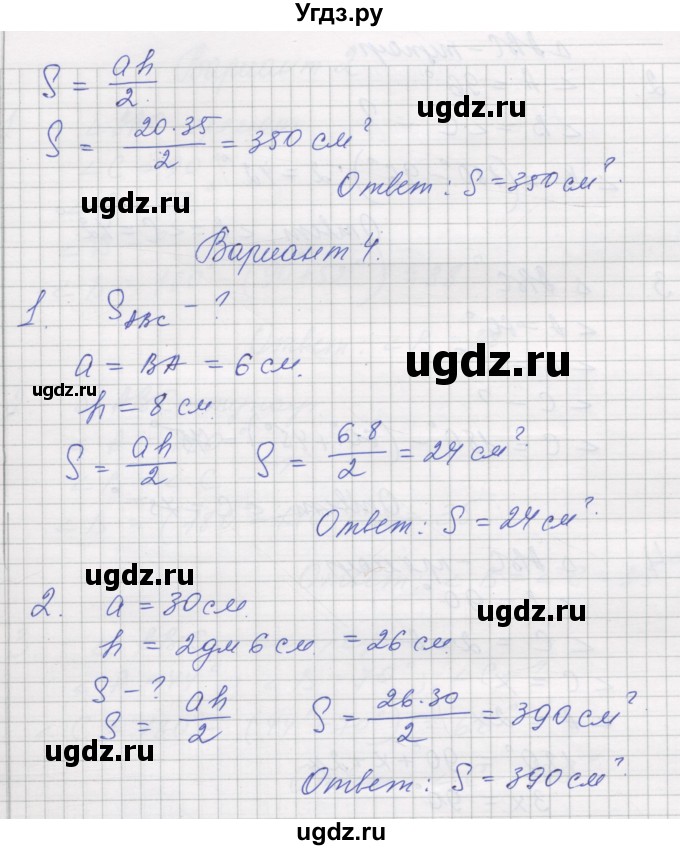 Угдз.ру
S = ah/2
S = 20·35/2 = 350 см²
Ответ: S = 350 см².
ugdz.ru
ugdz.ru
Вариант 4.
1. S_ABC - ?
a = BA = 6 см.
ugdz.ru
ugdz.ru
h = 8 см
S = ah/2 S = 6·8/2 = 24 см².
Ответ: S = 24 см².
ugdz.ru
ugdz.ru
2. a = 30 см.
h = 2 дм 6 см. = 26 см.
ugdz.ru
S - ?
S = ah/2 S = 26·30/2 = 390 см²
ugdz.ru
Ответ: S = 390 см².
ugdz.ru
ugdz.ru